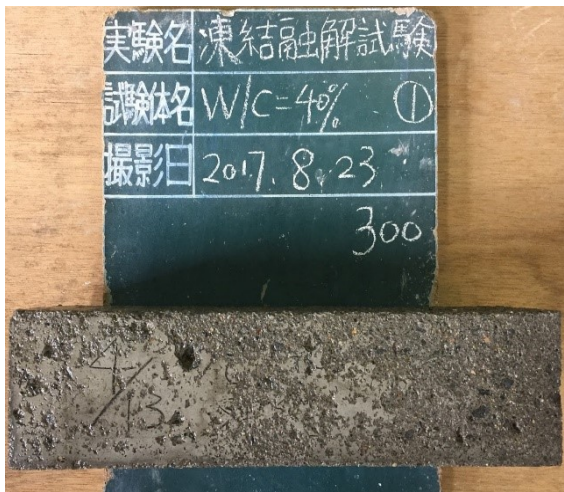 実験名 凍結融解試験
試験体名 W/C=40% ①
撮影日 2017.8.23
300
4/13